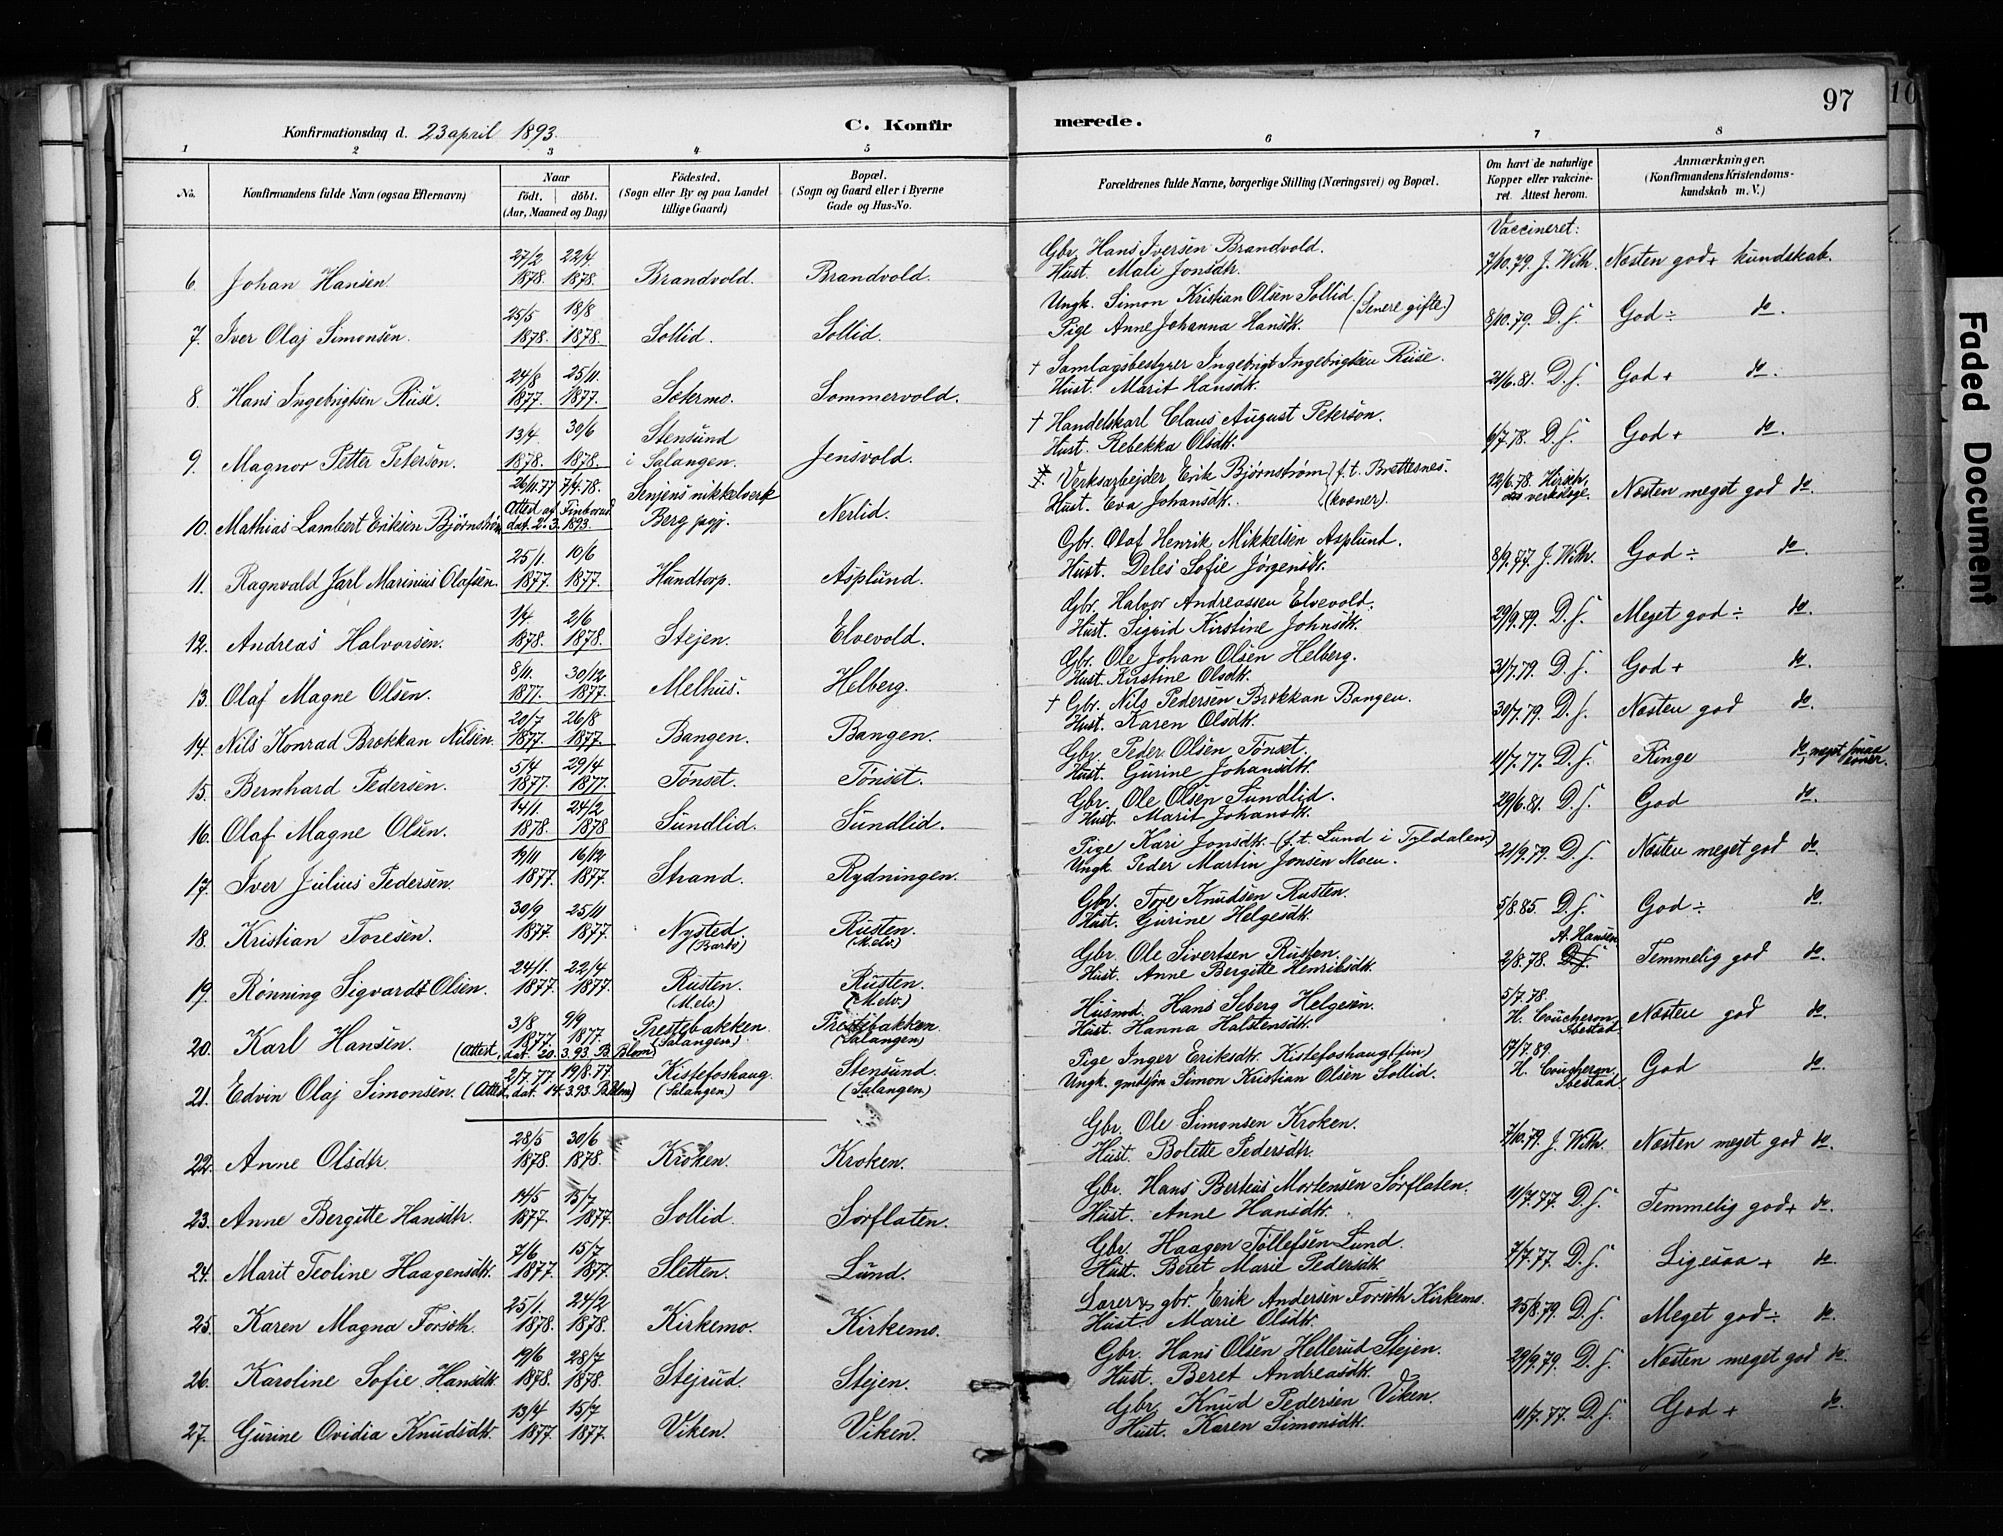 97
10
Konfirmationsdag d. 23 april 1893.
C. Konfir
merede.
1 2 3 4 5 6 7 8
No.
Konfirmandens fulde Navn (ogsaa Efternavn)
Naar
født. døbt.
(Aar, Maaned og Dag)
Fødested.
(Sogn eller By og paa Landet
tillige Gaard)
Bopæl.
(Sogn og Gaard eller i Byerne
Gade og Hus-No.
Forældrenes fulde Navne, borgerlige Stilling (Næringsvei) og Bopæl.
Om havt de naturlige
Kopper eller vakcine-
ret. Attest herom.
Anmærkninger,
(Konfirmandens Kristendoms-
kundskab m. V.)
Vaccineret:
27/2 22/4 Gbr. Hans Iversen Brandvold.
6. Johan Hansen. 1878. 1878. Brandvold. Brandvold. Hust. Mali Jonsdtr. 7/10.79. J. With. Næsten god + kundskab.
25/5 18/8 Ungk. Simon Kristian Olsen Sollid. (Senere gifte.)
7. Iver Olaj Simonsen. 1878. 1878. Sollid. Sollid. Pige Anne Johanna Hansdtr. 8/10.79. D. s. God ÷ do.
24/8 25/11 + Samlagsbestyrer Ingebrigt Ingebrigtsen Riise.
8. Hans Ingebrigtsen Riise. 1877. 1877. Sætermo. Sommervold. Hust. Marit Hansdtr. 21/6.81. D. s. God + do.
13/4 30/6 Stensund + Handelskarl Claus August Peterson.
9. Magnor Petter Peterson. 1878. 1878. i Salangen. Jensvold. Hust. Rebekka Olsdtr. 6/7.78. D. s. God + do.
26/11.77 7/4.78. Senjens nikkelverk Verksarbejder Erik Bjørnstrøm f. t. Brettesnes.
Attest af Finborud
10. Mathias Lambert Eriksen Bjørnstrøm dat. 2.3.1893. Berg pgj. Nerlid. Hust. Eva Johansdtr. (kvæner). 12/6.78. Næsten meget god do.
25/1. 10/6 Gbr. Olaf Henrik Mikkelsen Asplund.
11. Ragnvald Jarl Marinius Olafsen. 1877. 1877. Hundtorp. Asplund. Hust. Deles Sofie Jørgensdtr. 8/9.77. J. With. God ÷ do.
1/4 2/6 Gbr. Halvor Andreassen Elvevold.
12. Andreas Halvorsen. 1878. 1878. Stejen. Elvevold. Hust. Sigrid Kirstine Johnsdtr. 29/9.79. D. s. Meget god ÷ do.
8/11. 30/12 Gbr. Ole Johan Olsen Helberg.
13. Olaf Magne Olsen. 1877. 1877. Melhus. Helberg. Hust. Kirstine Olsdtr. 31/7.79. D. s. God + do.
20/7 26/8 + Gbr. Nils Pedersen Brækkan Bangen.
14. Nils Konrad Brækkan Nilsen. 1877. 1877. Bangen. Bangen. Hust. Karen Olsdtr. 30/7.79. D. s. Næsten god do.
5/4 29/4 Gbr. Peder Olsen Tønset.
15. Bernhard Pedersen. 1877. 1877. Tønset. Tønset. Hust. Gurine Johansdtr. 11/7.77. D. s. Ringe do, meget smaa evner.
14/1. 24/2 Gbr. Ole Olsen Sundlid.
16. Olaf Magne Olsen. 1878. 1878 Sundlid. Sundlid. Hust. Marit Johansdtr. 29/6.81. D. s. God do.
19/11 16/12 Pige Kari Jonsdtr. (f. t. Lund i Tyldalen.)
17. Iver Julius Pedersen. 1877. 1877. Strand. Rydningen. Ungk. Peder Martin Jonsen Moen. 21/9.79. D. s. Næsten meget god do.
30/9 25/11 Gbr. Tore Knudsen Rusten.
18. Kristian Toresen. 1877. 1877. Nysted (Bardo) Rusten. (Melv.) Hust. Gurine Helgesdtr. 5/8.85. D. s. God ÷ do.
24/1. 22/4 Gbr. Ole Sivertsen Rusten. A. Hansen
19. Rønning Sigvardt Olsen. 1877. 1877. Rusten. (Melv.) Rusten. (Melv.) Hust. Anne Bergitte Henriksdtr. 2/8.78. D. s. Temmelig god do.
3/8 9/9 Prestebakken. Prestebakken. Husmd. Hans Seberg Helgesen. 5/7.78.
20. Karl Hansen. 1877. 1877. (Salangen) (Salangen) Hust. Hanna Halstensdtr. H. Coucheron, Ibestad Næsten god do.
(Attest, dat. 20.3.93, B. Blom)
2/7.77. 19/8.77. Kistefoshaug. Stensund. Pige Inger Eriksdtr. Kistefoshaug (fin) 17/7.89.
21. Edvin Olaj Simonsen. (Attest, dat. 14.3.93. B. Blom) (Salangen) (Salangen) Ungk. gmdsøn Simon Kristian Olsen Sollid. H. Coucheron, Ibestad God do.
28/5 30/6 Gbr. Ole Simonsen Kroken.
22. Anne Olsdtr. 1878. 1878. Kroken. Kroken. Hust. Bolette Pedersdtr. 7/10.79. J. With. Næsten meget god do.
14/5 15/7 Gbr. Hans Berteus Mortensen Sørflaten.
23. Anne Bergitte Hansdtr. 1877. 1877. Sollid. Sørflaten. Hust. Anne Hansdtr. 11/7.77. D. s. Temmelig god + do.
7/6 15/7 Gbr. Haagen Tollefsen Lund.
24. Marit Teoline Haagensdtr. 1877. 1877. Sletten. Lund. Hust. Beret Marie Pedersdtr. 7/7.77. D. s. Ligesaa + do.
25/1. 24/2 Lærer & gbr. Erik Andersen Forseth Kirkemo.
25. Karen Magna Forseth. 1878. 1878. Kirkemo. Kirkemo. Hust. Marie Olsdtr. 25/8.79. D. s. Meget god ÷ do.
19/6 28/7 Gbr. Hans Olsen Hellerud Stejen.
26. Karoline Sofie Hansdtr. 1878. 1878. Stejrud. Stejen. Hust. Beret Andreasdtr. 29/9.79. D. s. Næsten meget god do.
13/4 15/7 Gbr. Knud Pedersen Viken.
27. Gurine Ovidia Knudsdtr. 1877. 1877. Viken. Viken. Hust. Karen Simonsdtr. 11/7.77. D. s. God + do.
Faded Document